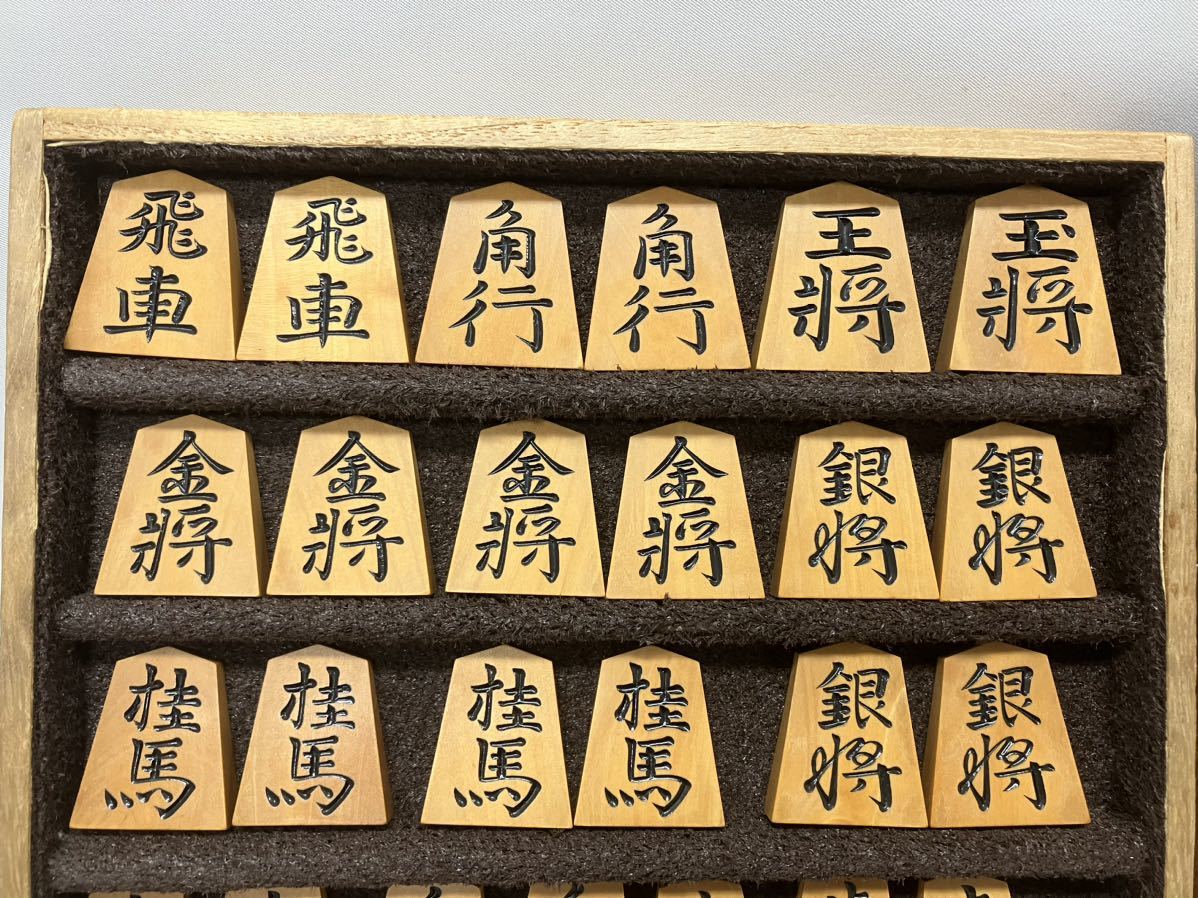 飛車 飛車 角行 角行 王將 玉將
金將 金將 金將 金將 銀将 銀将
桂馬 桂馬 桂馬 桂馬 銀将 銀将